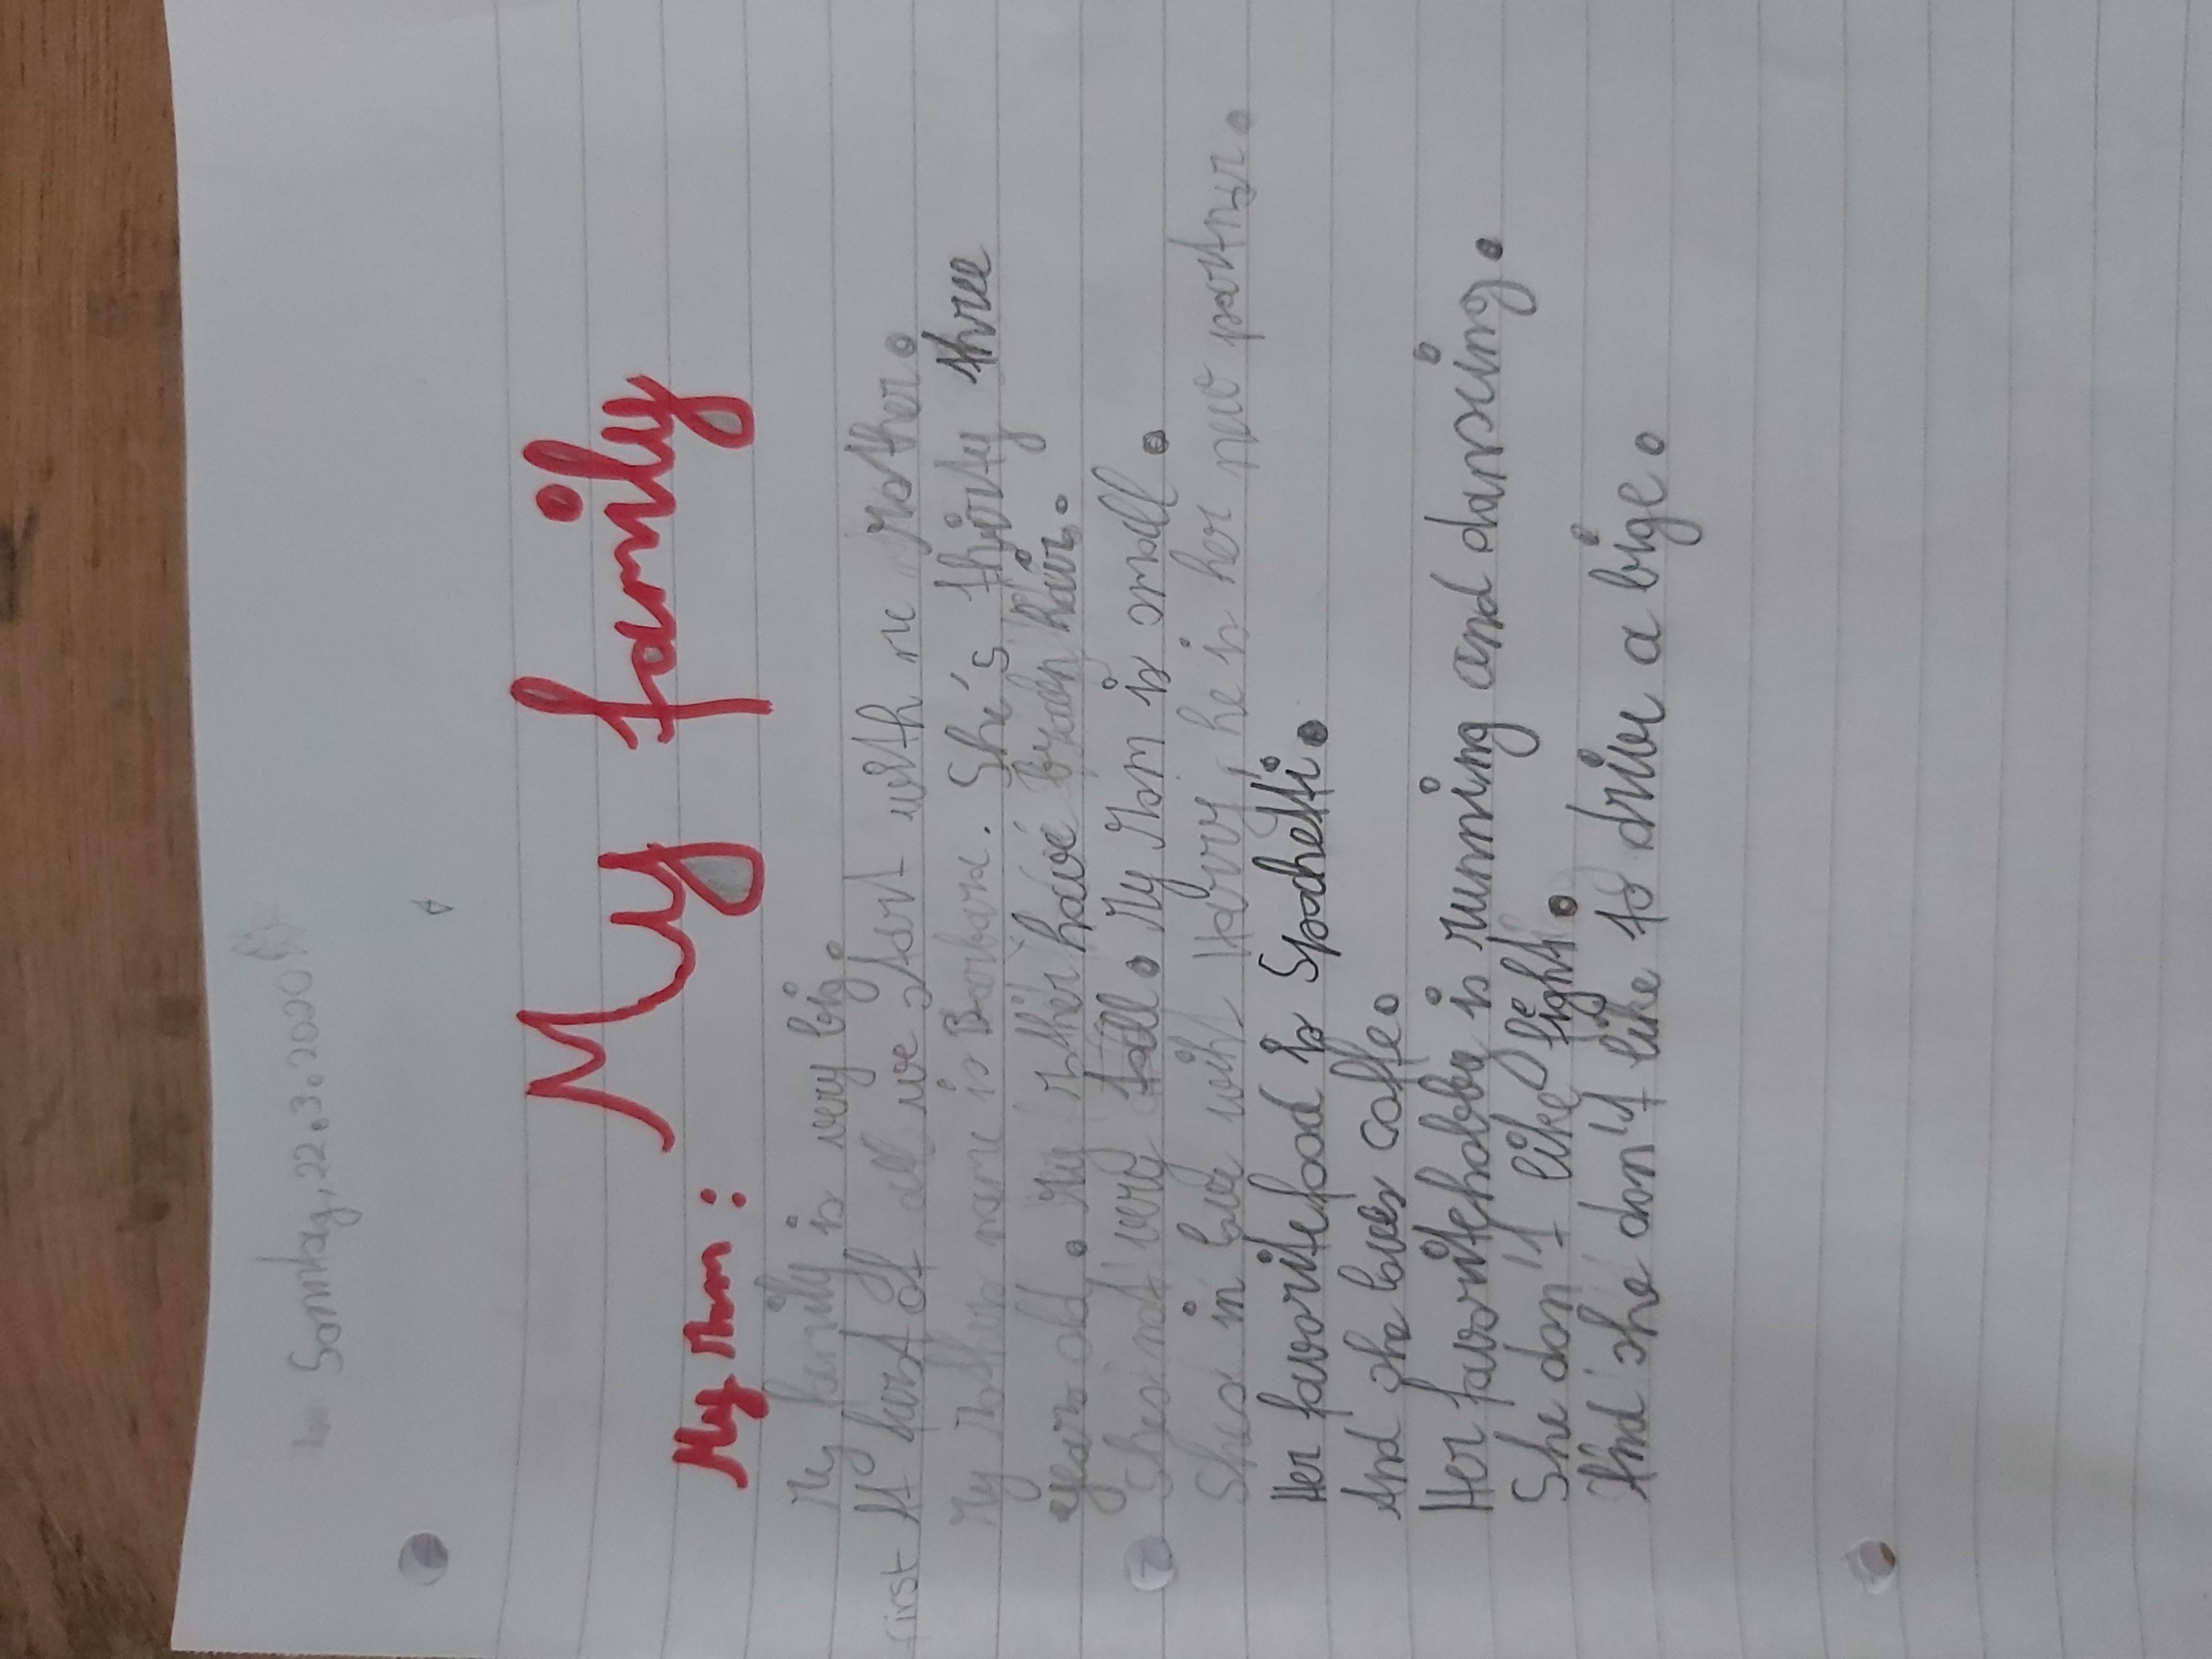 Sonntag, 22.3.2020
My family
My Mom:
My family is very big.
first At furst of all we start with me Mother.
My Mother name is Barbara. She's thirty three
years old. My Mother have braun hair.
She is not very tall. My Mom is small.
Shes in love wiht Harry, he is her new partner.
Her favorite food is Spachetti.
And she loves coffe.
Her favorite hobby is running and dansing.
She don't like fight.
And she don't like to drive a bige.